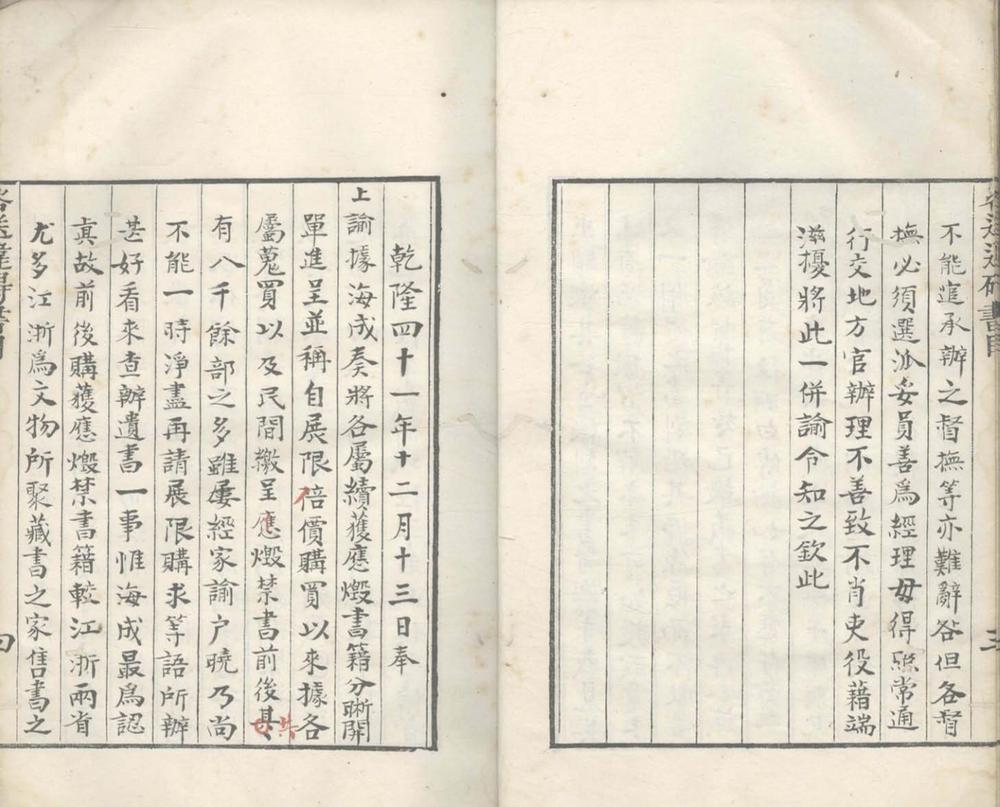 不能寬承辦之督撫等亦難辭咎但各督
撫必須選派妥員善為經理毋得照常通
行交地方官辦理不善致不肖吏役藉端
滋擾將此一併諭令知之欽此
乾隆四十一年十二月十三日奉
上諭據海成奏將各屬續獲應燬書籍分晰開
單進呈並稱自展限倍價購買以來據各
屬蒐買以及民間繳呈應燬禁書前後其
共
有八千餘部之多雖屢經家諭户曉乃尚
不能一時淨盡再請展限購求等語所辦
甚好看來查辦遺書一事惟海成最為認
真故前後購獲應燬禁書籍較江浙兩省
尤多江浙為文物所聚藏書之家售書之